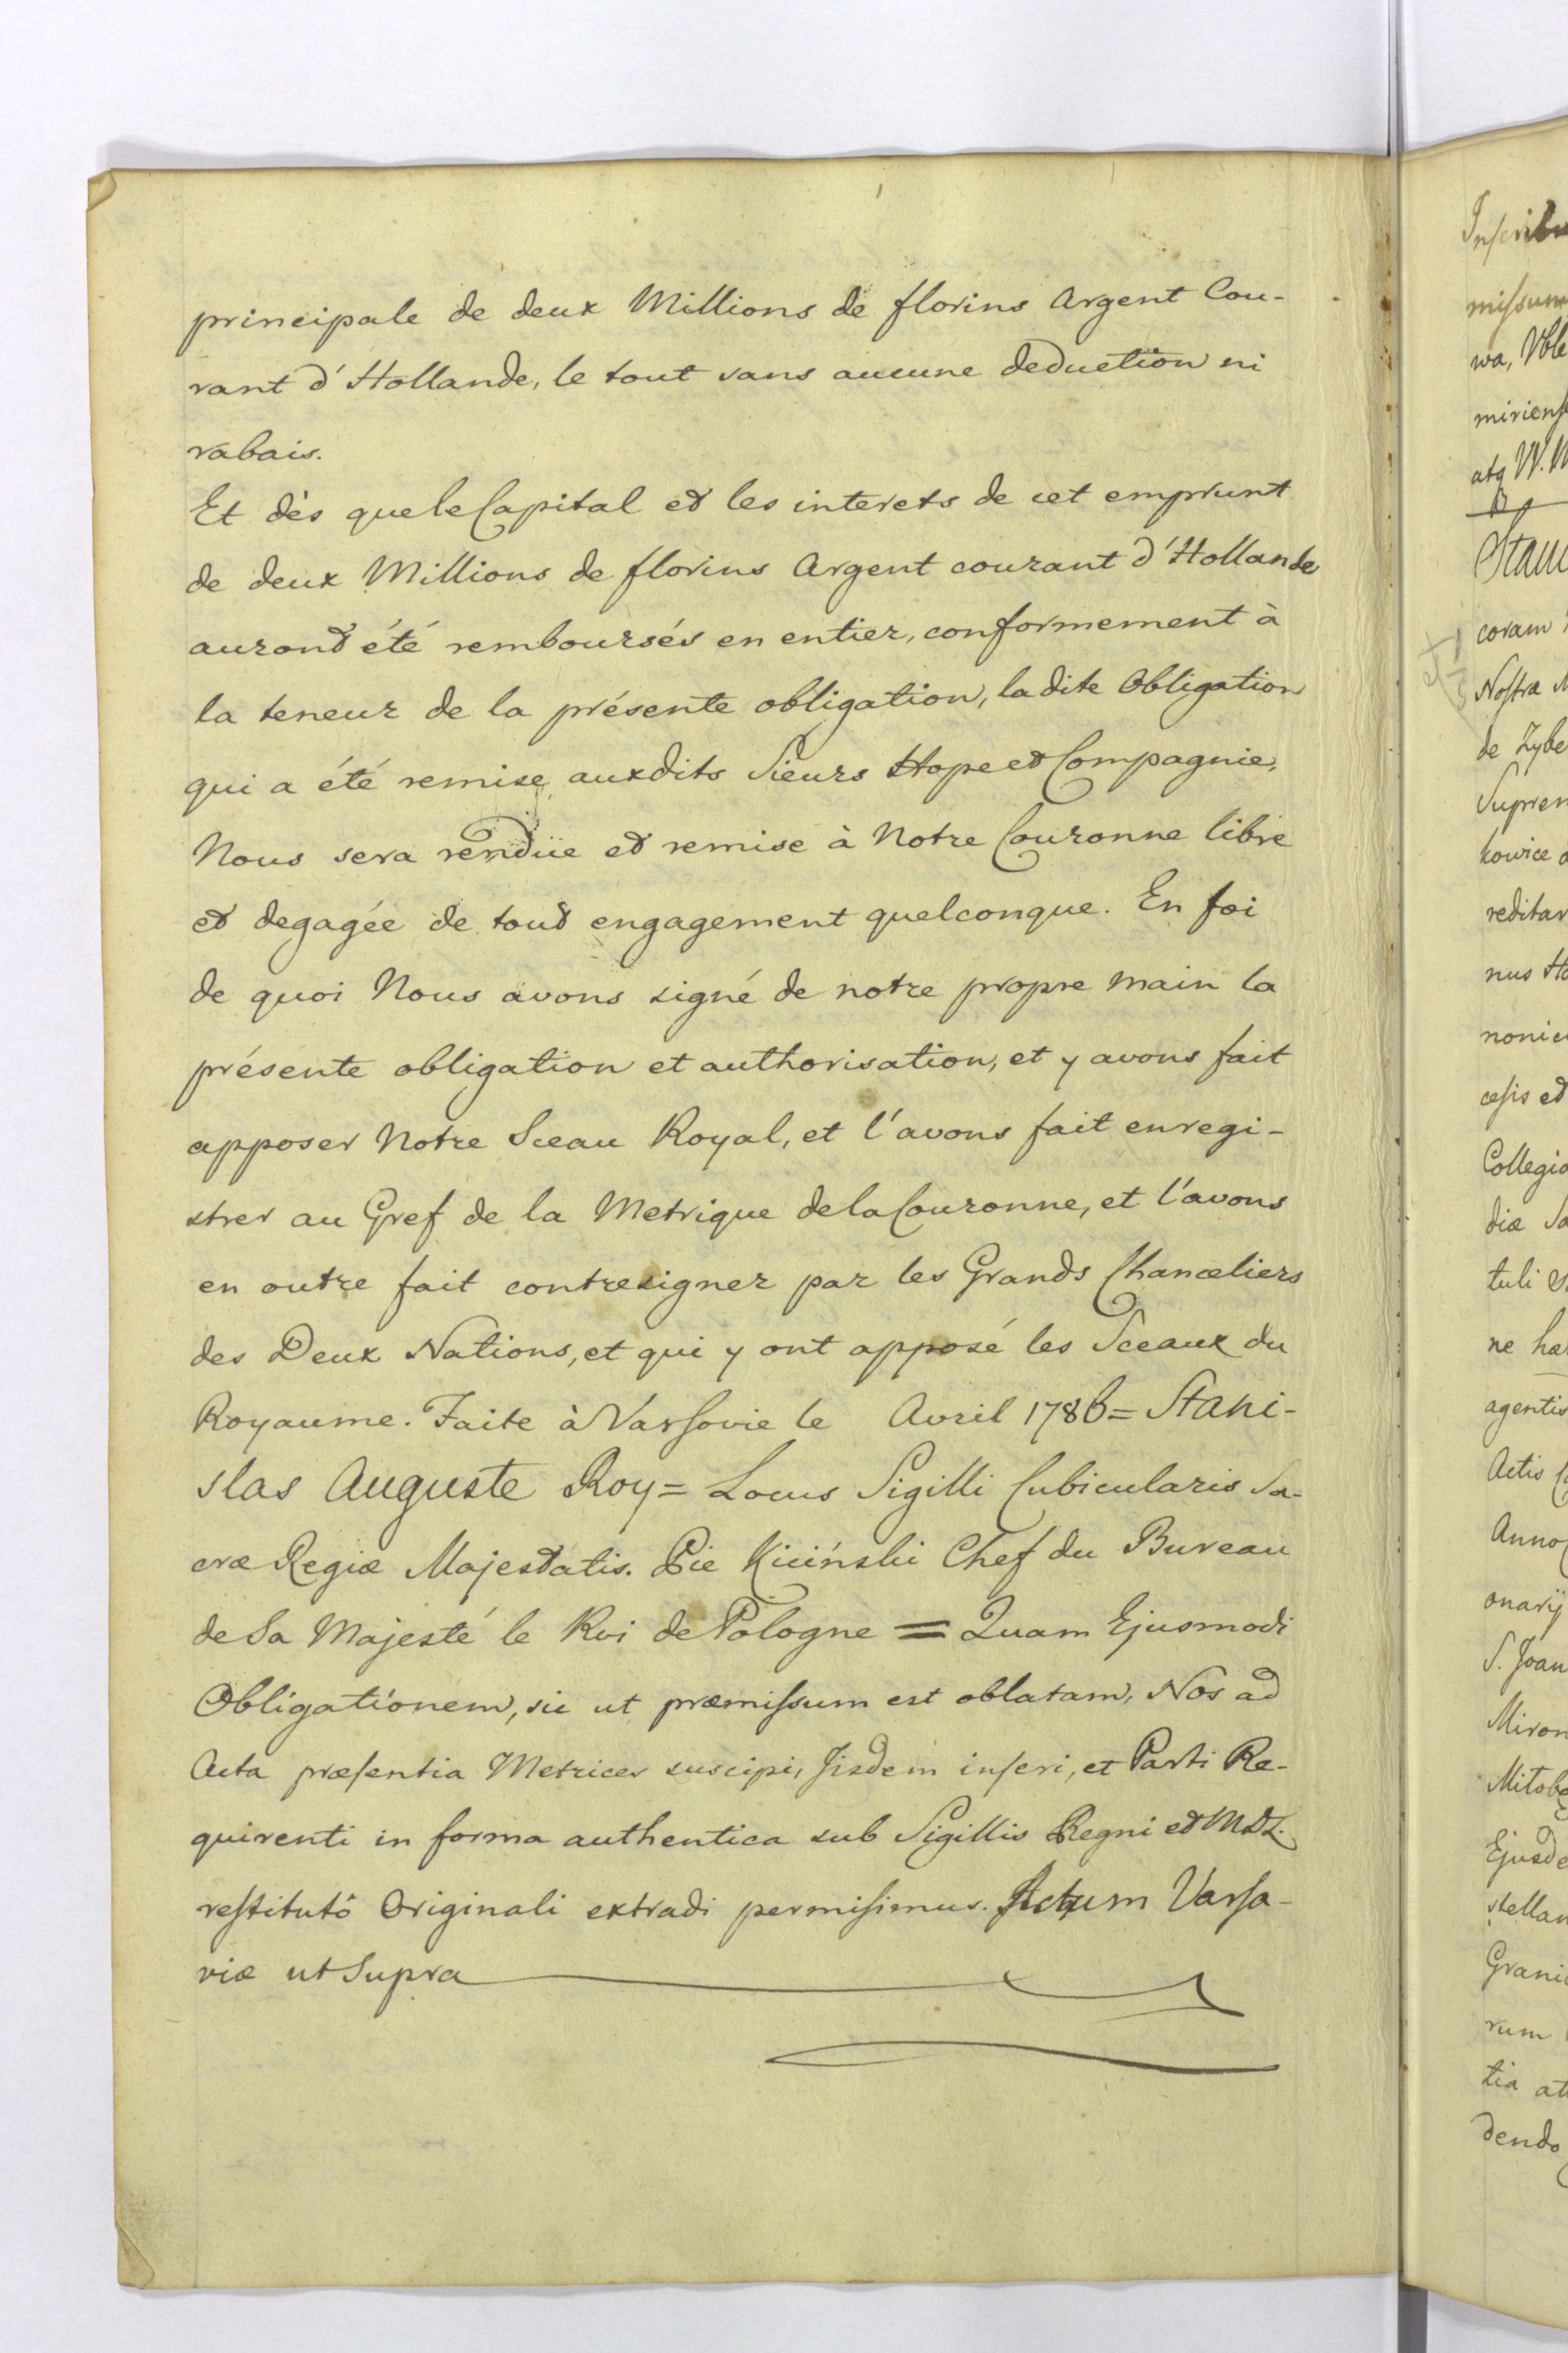 principale de deux Millions de florins Argent Cou-
rant d'Hollande, le tout sans aucune deduction ni
rabais.
Et dès que le Capital et les interets de cet emprunt
de deux Millions de florins Argent courant d'Hollande
auront été remboursés en entier, conformement à
la teneur de la présente obligation, la dite Obligation
qui a été remise auxdits Sieurs Hope et Compagnie,
Nous sera rendüe et remise à Notre Couronne libre
et degagée de tout engagement quelconque. En foi
de quoi Nous avons signé de notre propre main la
présente obligation et authorisation, et y avons fait
apposer Notre Sceau Royal, et l'avons fait enregi-
strer au Gref de la Metrique de la Couronne, et l'avons
en outre fait contresigner par les Grands Chanceliers
des Deux Nations, et qui y ont apposé les Sceaux du
Royaume. Faite à Varsovie le Avril 1786 = Stani-
slas Auguste Roy = Locus Sigilli Cubicularis Sa-
cræ Regiæ Majestatis. Pie Kiciński Chef du Bureau
de Sa Majesté le Roi de Pologne = Quam Ejusmodi
Obligationem, sic ut præmissum est oblatam, Nos ad
Acta præsentia Metrices suscipi, Iisdem inseri, et Parti Re-
quirenti in forma authentica sub Sigillis Regni et MDL.
restitutô Originali extradi permisimus. Actum Varsa-
viæ ut Supra
Inscrib
missum
wa, Vble
miriens
atq W. M
Stani
coram
Nostra M
de Zybe
Suprem
kowice
reditar
nus Ho
nonic
cesis et
Collegi
diæ Sa
tuli
ne hæ
agentis
Actis C
Anno
onarij
S. Joan
Miron
Mitob
Ejusde
stellan
Grani
rum
tia at
dendo